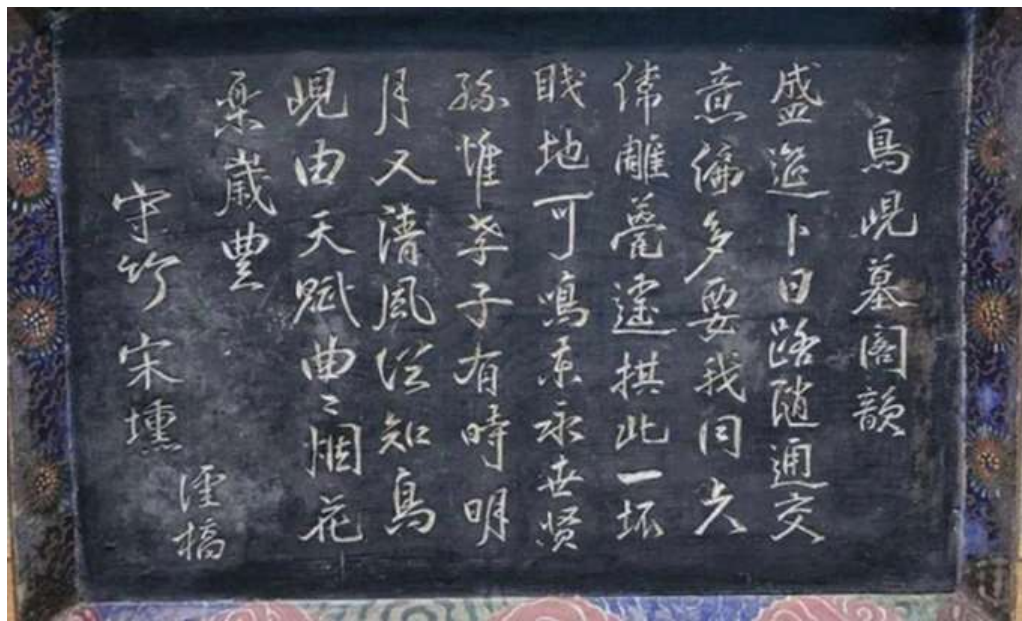 鳥峴墓閣韻
盛遊卜日路随通交
意偏多要我同先
雕甍遽拱此一坏
地可鳴東永世賢
孫惟孝子有時明
月又清風從知鳥
峴由天賦曲〻烟花
樂歲豊
守竹宋壎
橋